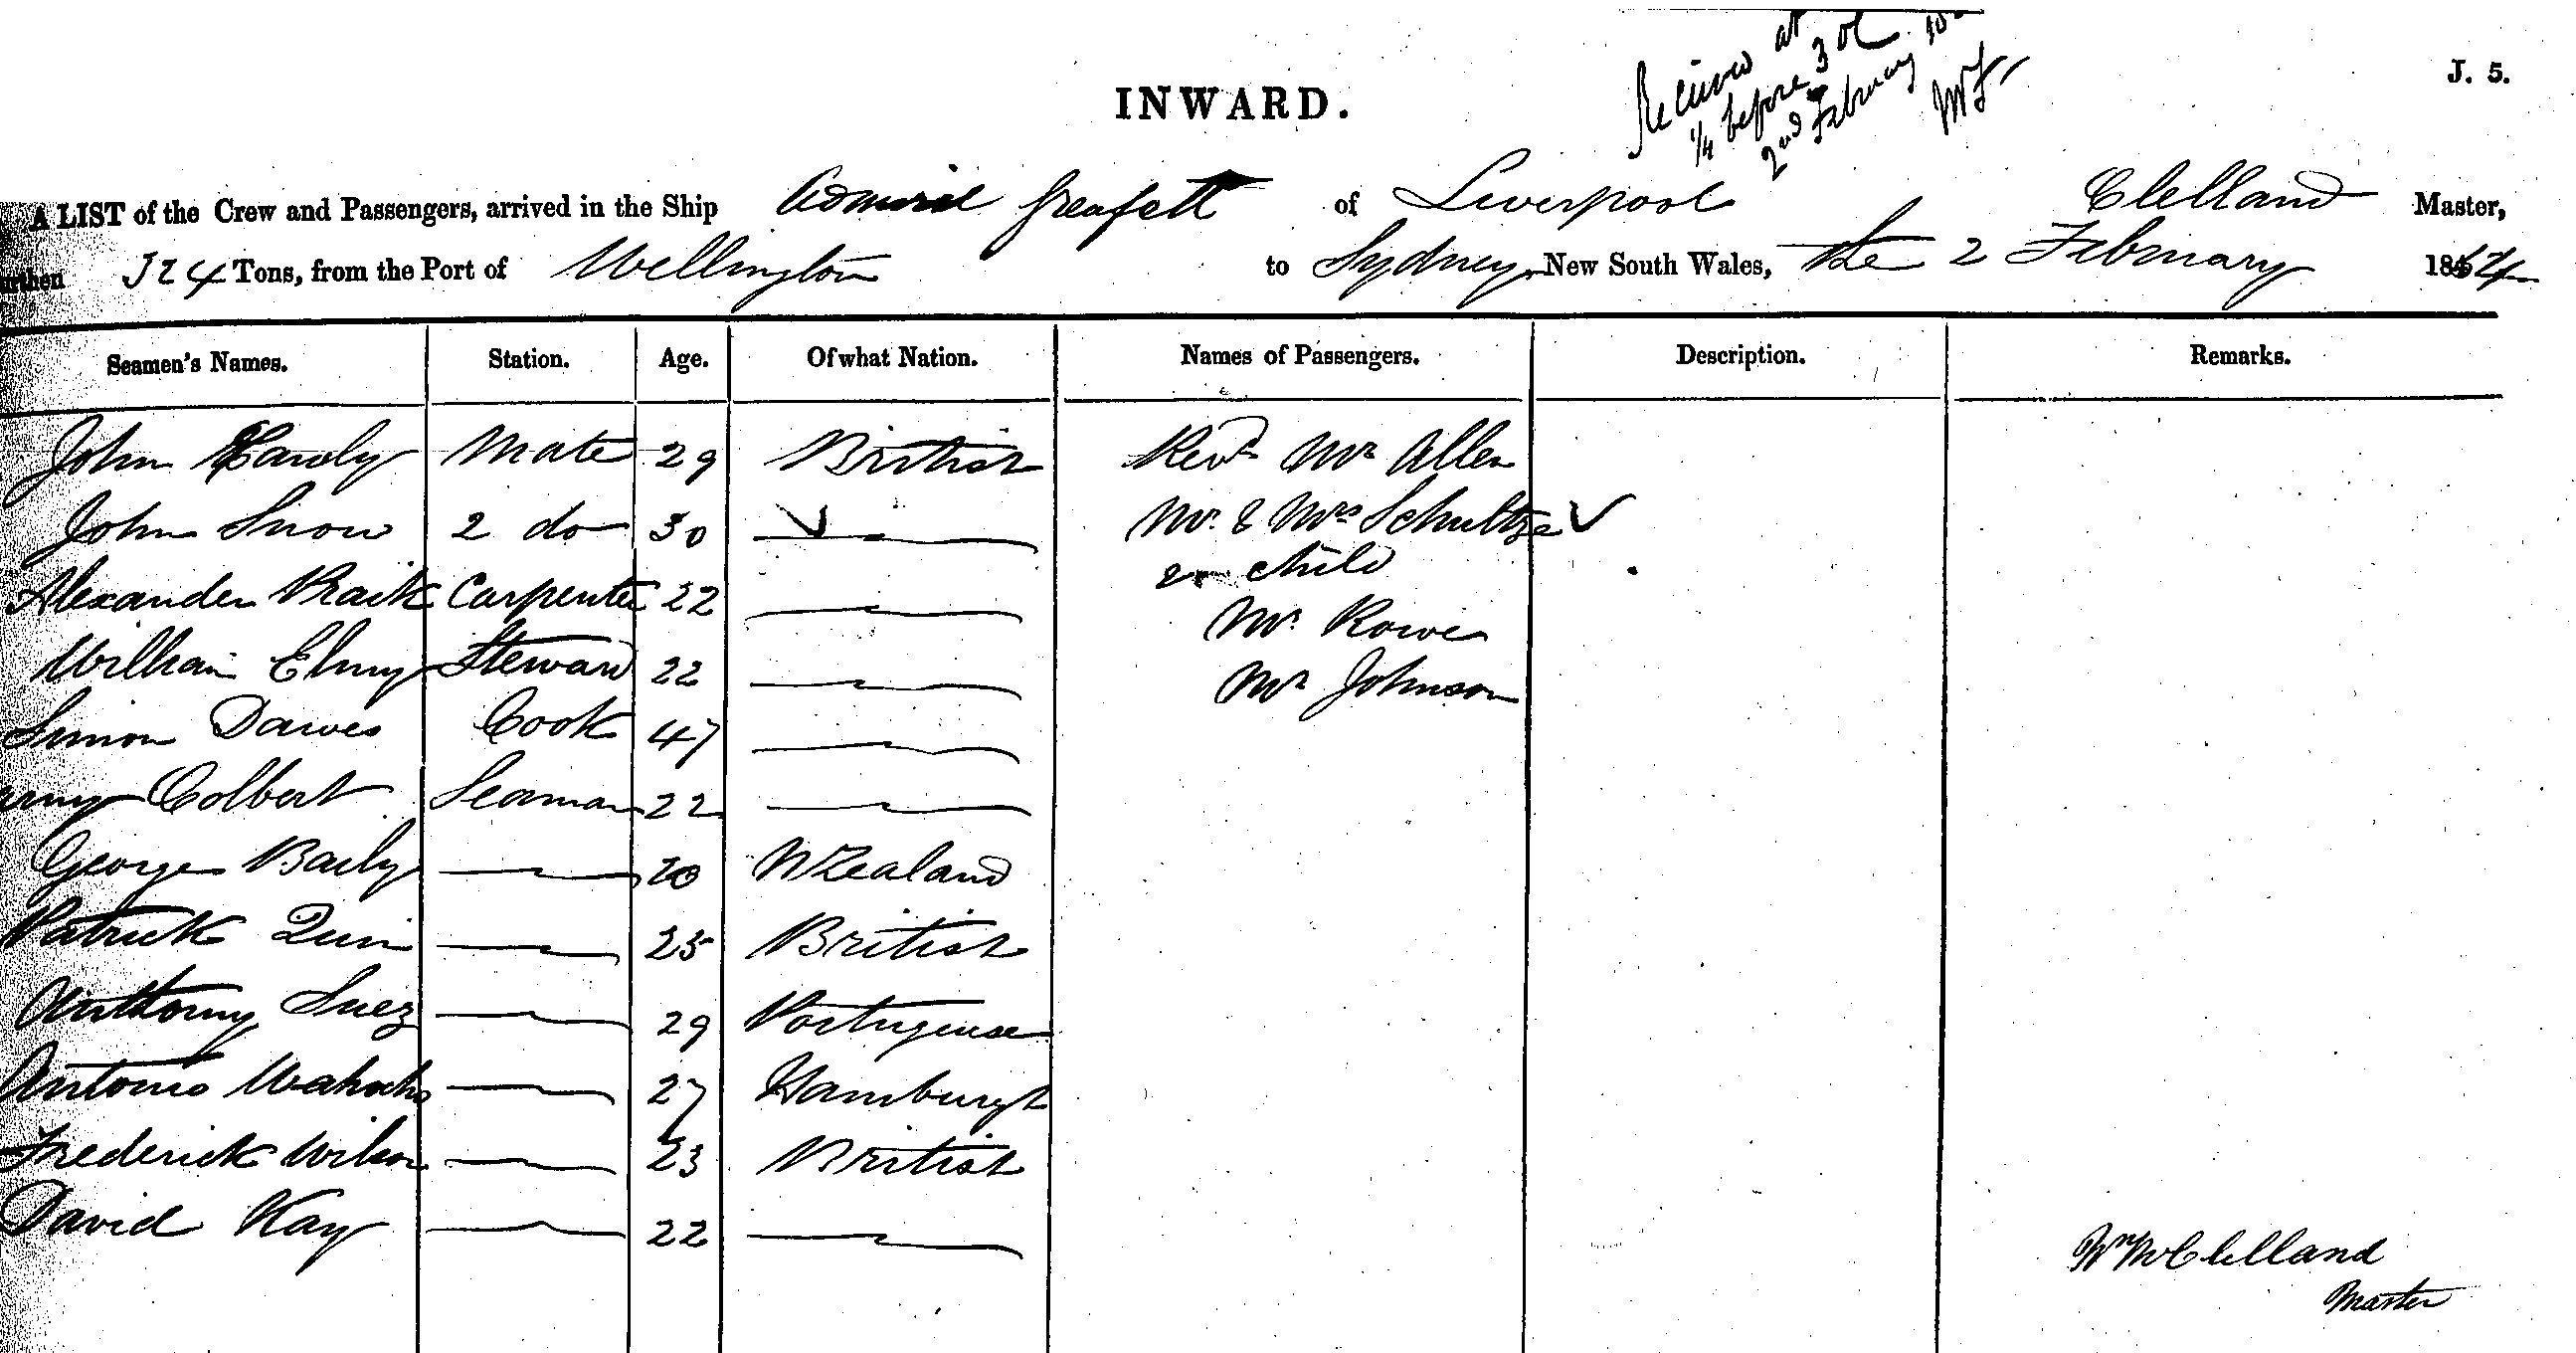 Received at
¼ before 3 oC
2nd February
J. 5.
INWARD.
A LIST of the Crew and Passengers, arrived in the Ship Admiral Grenfell of Liverpool Clelland Master,
324 Tons, from the Port of Wellington to Sydney, New South Wales, the 2 February 1864
Seamen's Names. Station. Age. Of what Nation. Names of Passengers. Description. Remarks.
John Hardy Mate 29 British Revd Mr Allen
John Snow 2 do 30 Mr. & Mrs Schultze
child
Alexander Raik Carpenter 22
Mr. Rowe
William Elmy Steward 22
Mr Johnson
Simon Dawes Cook 47
Colbert Seaman 22
George Baily 20 NZealand
Patrick Quin 25 British
Anthony Suez 29 Portuguese
Antonio 27 Hamburgh
Frederick Wilson 23 British
David Kay 22
Wm McClelland
Master